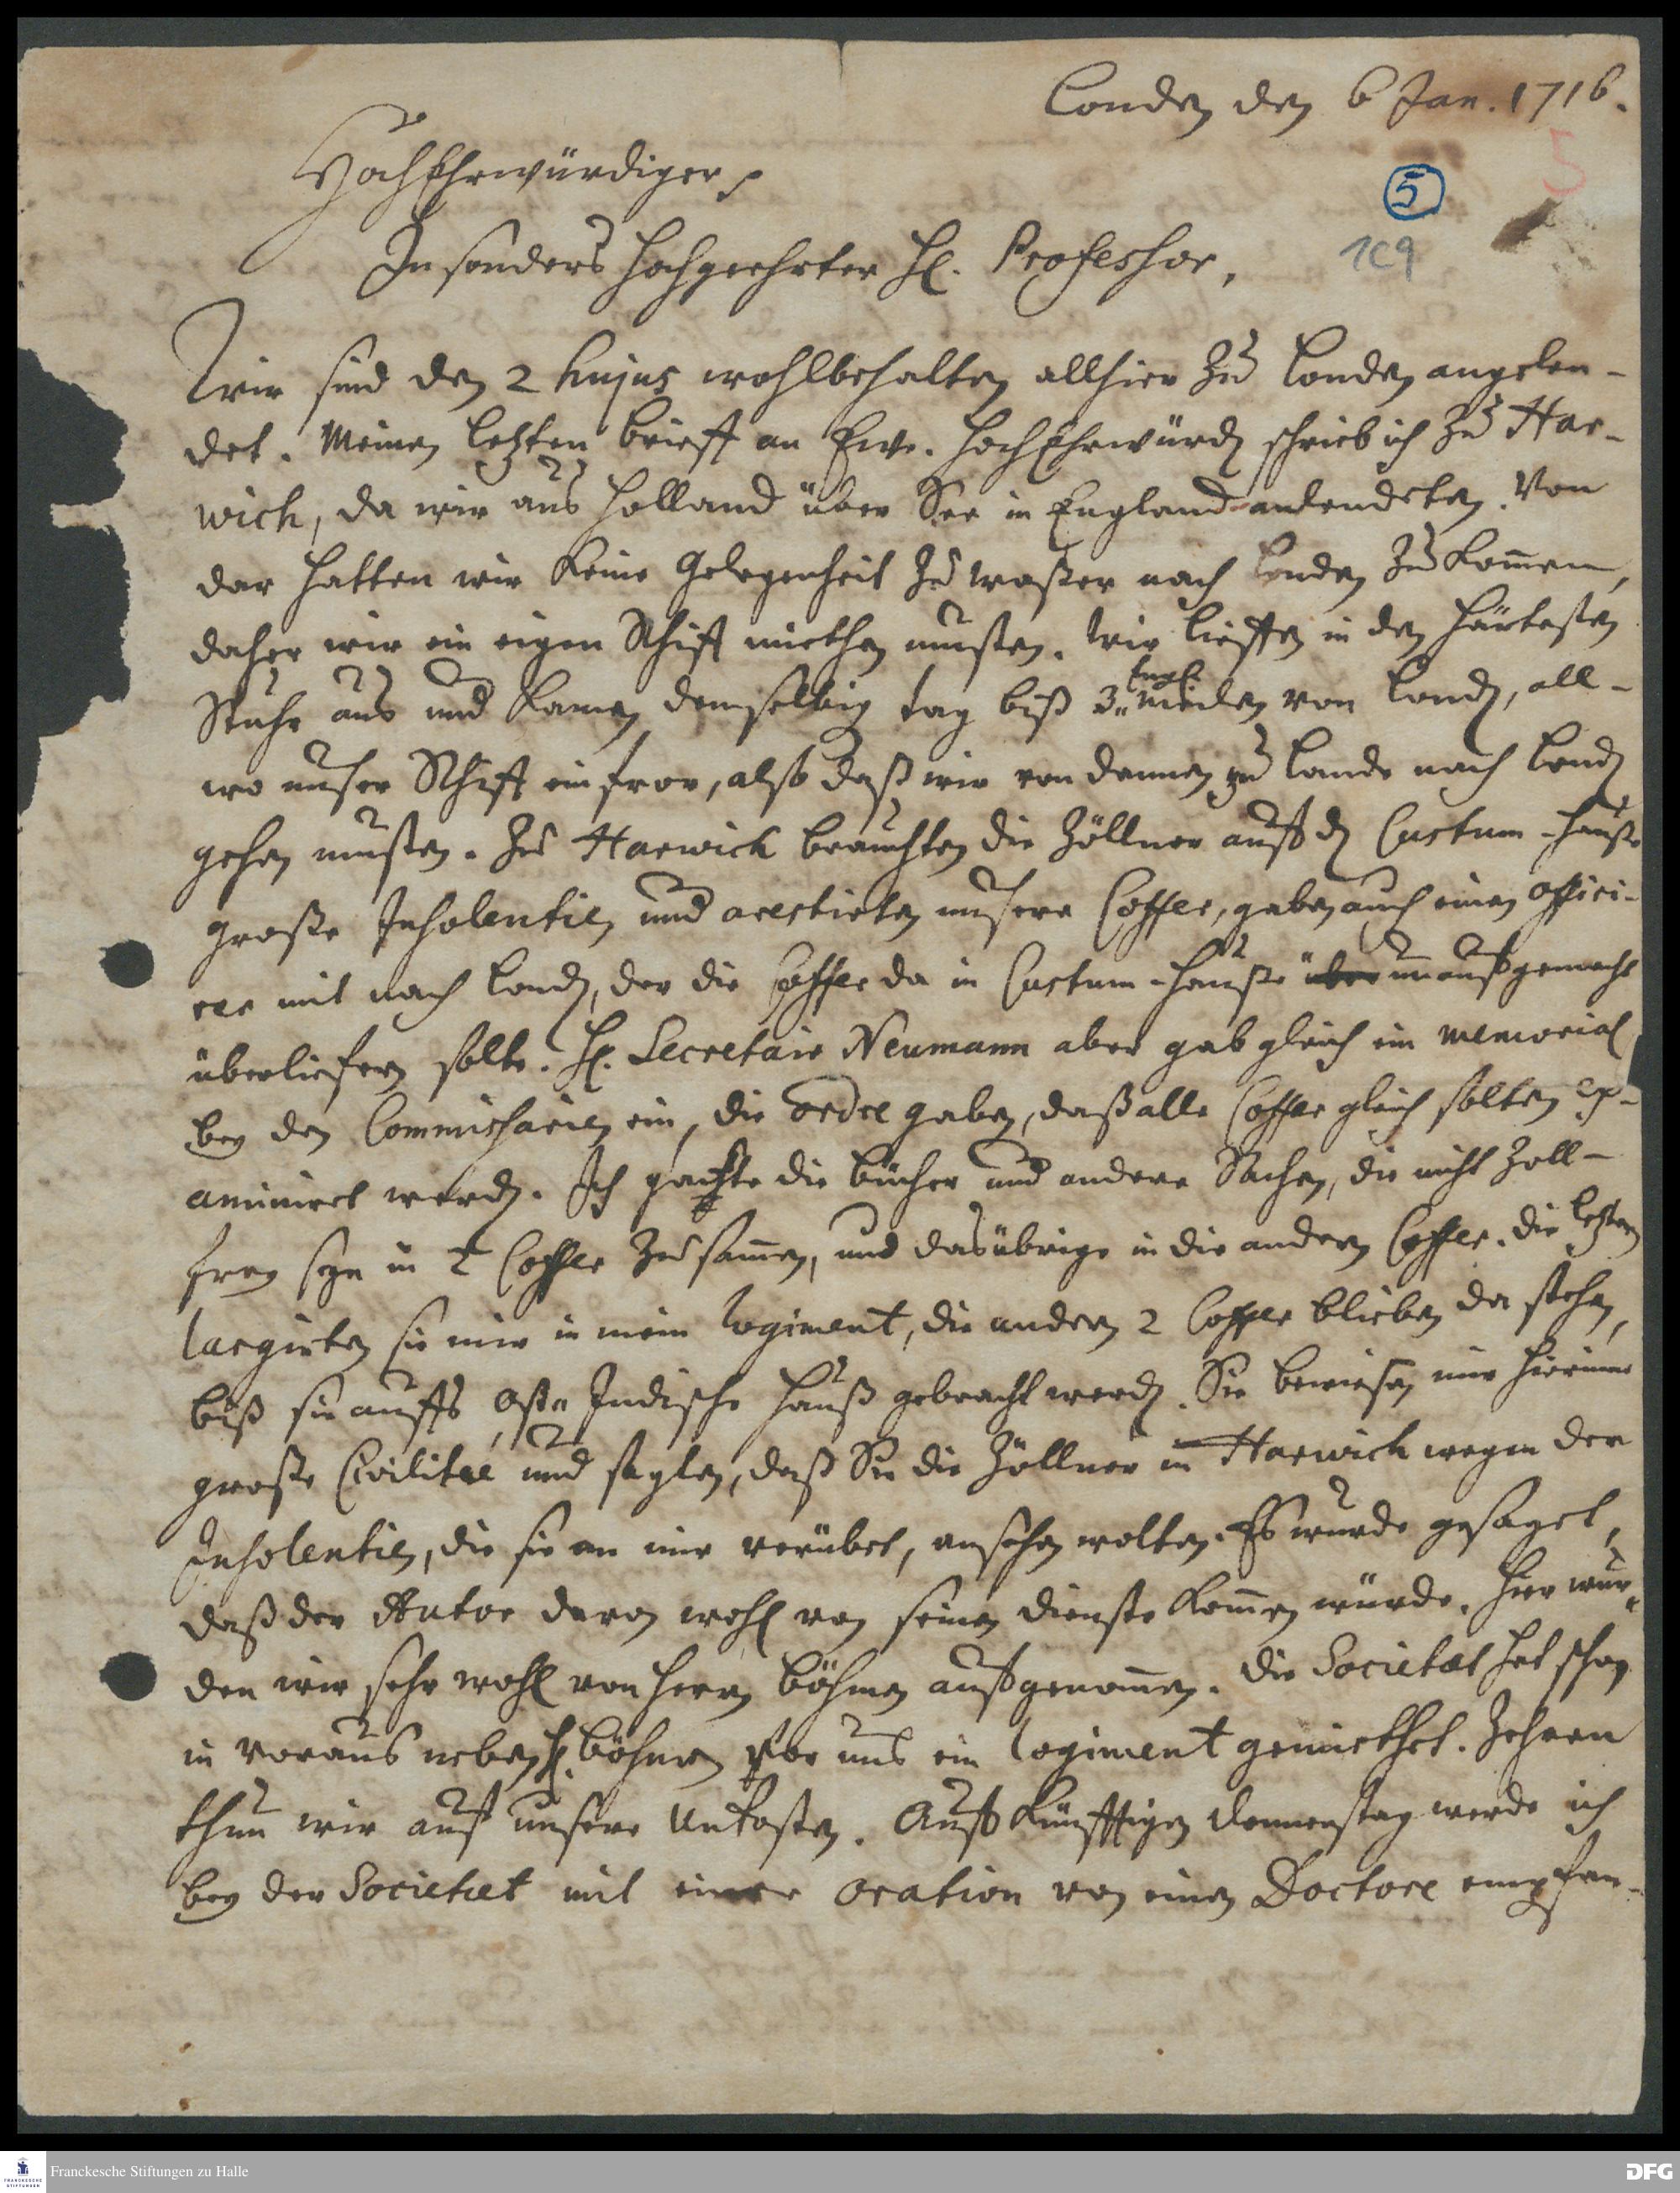 Londen den 6 Jan. 1716.
HochEhrwürdiger
5
5
Insonders Hochgeehrter H. Professor,
1C9
Wir sind den 2 hujus wohlbehalten allhier zu Londen angelen-
det. Meinen letzten brieff an Ewr. HochEhrwürd. schrieb ich zu Har-
wich, da wir aus Holland über See in England anlendeten. Von
dar hatten wir keine Gelegenheit zu waßer nach Londen zu kommen,
daher wir ein eigen Schiff miethen musten. Wir lieffen in den härtesten
aus und kamen demselbig tag biß 3 Engl. meilen von Lond., all-
wo unser Schiff einfror, also daß wir von dannen zu Lande nach Lond.
gehen musten. Zu Harwich brauchten die Zöllner auff d. Custum-Hause
große Insolentien und arestirten unsere Coffer, gaben auch einen offici-
rer mit nach Lond., der die Coffer da in Custum-Hause unauffgemacht
überliefern solte. H. Secretair Neumann aber gab gleich ein memorial
bey den Commissarien ein, die ordre gaben, daß alle Coffer gleich solten ex-
aminiret werd. Ich packte die bücher und andere Sachen, die nicht Zoll-
frey seyn in 2 Coffer zusammen, und das übrige in die andern Coffer. die letzten
largirten sie mir in mein Logiment, die andern 2 Coffer blieben da stehen,
biß sie auffs Ost-Indische Hauß gebracht werd. Sie bewiesen mir hierinne
große Civilitæt und sagten, daß Sie die Zöllner in Harwich wegen der
Insolentien, die sie an mir verübet, ansehen wolten. Es wurde gesaget,
daß der Autor davon wohl von seinen dienste kommen würde. Hier wur-
den wir sehr wohl von Herrn Böhmen auffgenommen. Die Societæt hat schon
in voraus neben H. Böhmen vor uns ein Logiment gemiethet. Zehren
thun wir auf unsere Unkosten. Auff künfftigen donnerstag werde ich
bey der Societæt mit einer oration von einen Doctore empfan-
Franckesche Stiftungen zu Halle
DFG